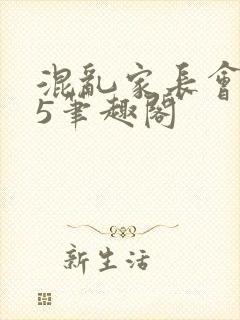 混亂家長會
5笔趣閣
新生活